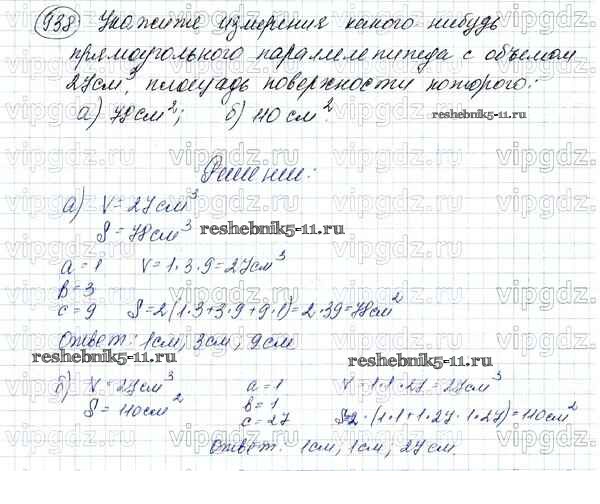 938 Укажите измерения какого нибудь
прямоугольного параллелепипеда с объемом
27см³, площадь поверхности которого:
а) 78см²; б) 110 см².
reshebnik5-11.ru
Решении:
а) V = 27см³
S = 78см³
reshebnik5-11.ru
a = 1 V = 1·3·9 = 27см³
в = 3
c = 9 S = 2(1·3+3·9+9·1) = 2·39 = 78см²
Ответ: 1см, 3см, 9см
reshebnik5-11.ru
reshebnik5-11.ru
б) V = 27см³ a = 1 V = 1·1·27 = 27см³
S = 110см² в = 1
c = 27 S=2·(1·1+1·27·1·27) = 110см²
Ответ: 1см, 1см, 27см.